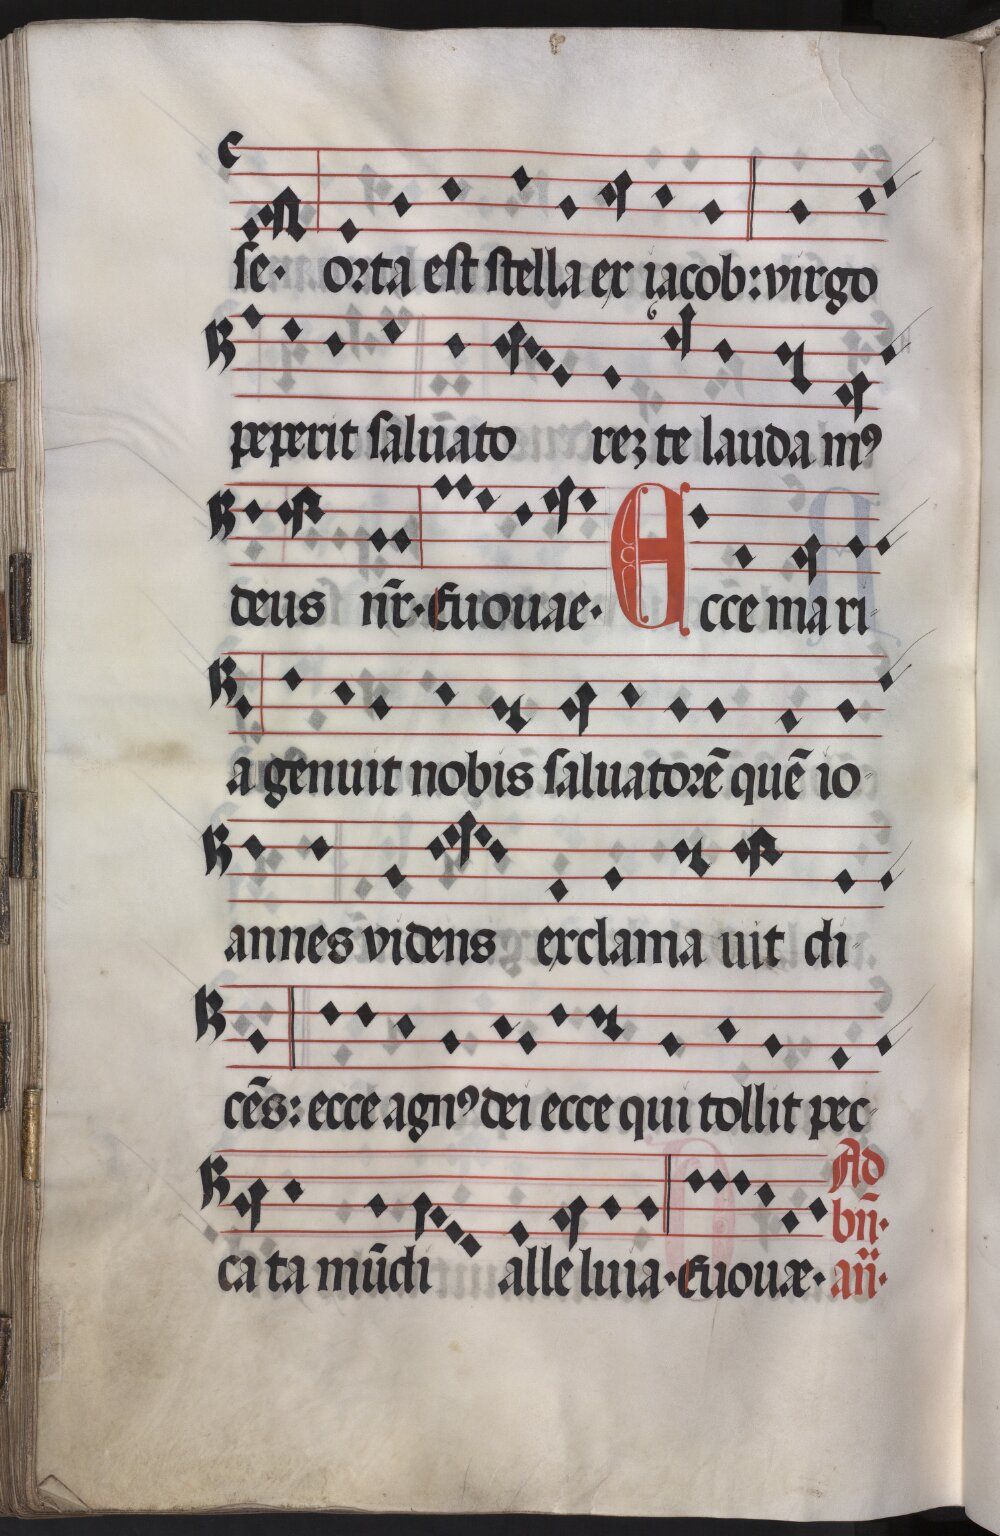 se· orta est stella ex iacob: virgo
peperit saluato rez te lauda mꝰ
deus nr̄· Euouae· Ecce ma ri-
a genuit nobis saluatorē quē io-
annes videns exclama uit di-
cēs: ecce agnꝰ dei ecce qui tollit pec-
ca ta mūdi alle luia· Euouæ· Ad
bn̄·
an̄·